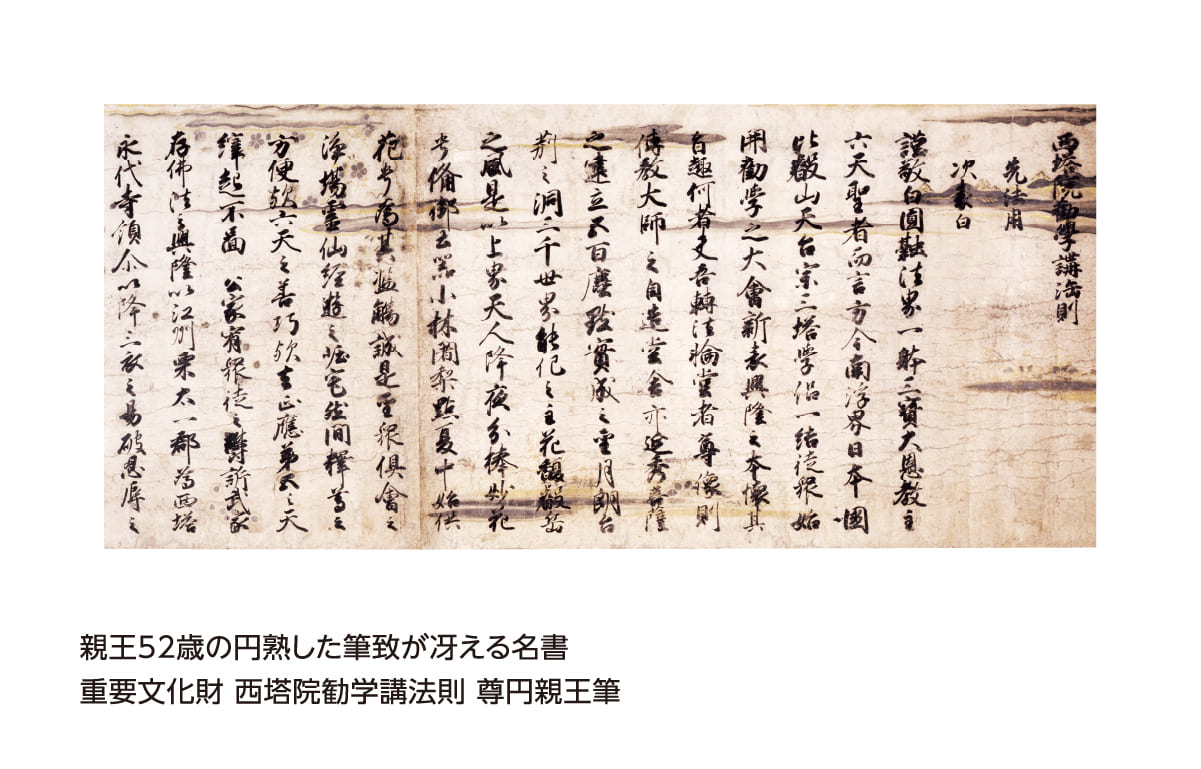 西塔院勧學講法則
先法用
次表白
謹敬白圓融法界一躰三寶大恩教主
六天聖者而言方今南浮界日本國
比叡山天台宗三塔學侶一結徒衆始
開勸學之大會新表興隆之本懐其
旨趣何者夫吾轉法輪堂者尊像則
傳教大師之自造堂舎亦延秀菩薩
之建立五百塵致實成之
之洞三千世界能化之主花馥叡岳
之風是以上界天人降夜分捧妙花
小林闍梨點夏中始供
花其濫觴誠是聖衆倶會之
浄場靈仙經遊之窟宅然間釋尊之
方便歟六天之善巧歟去正應第五之天
縡起不圖 公家宥衆徒之欝訴武家
存佛法之興隆以江州栗太一郡為西塔
永代寺領尓以降三衣之易破恩厚之
親王52歳の円熟した筆致が冴える名書
重要文化財 西塔院勧学講法則 尊円親王筆